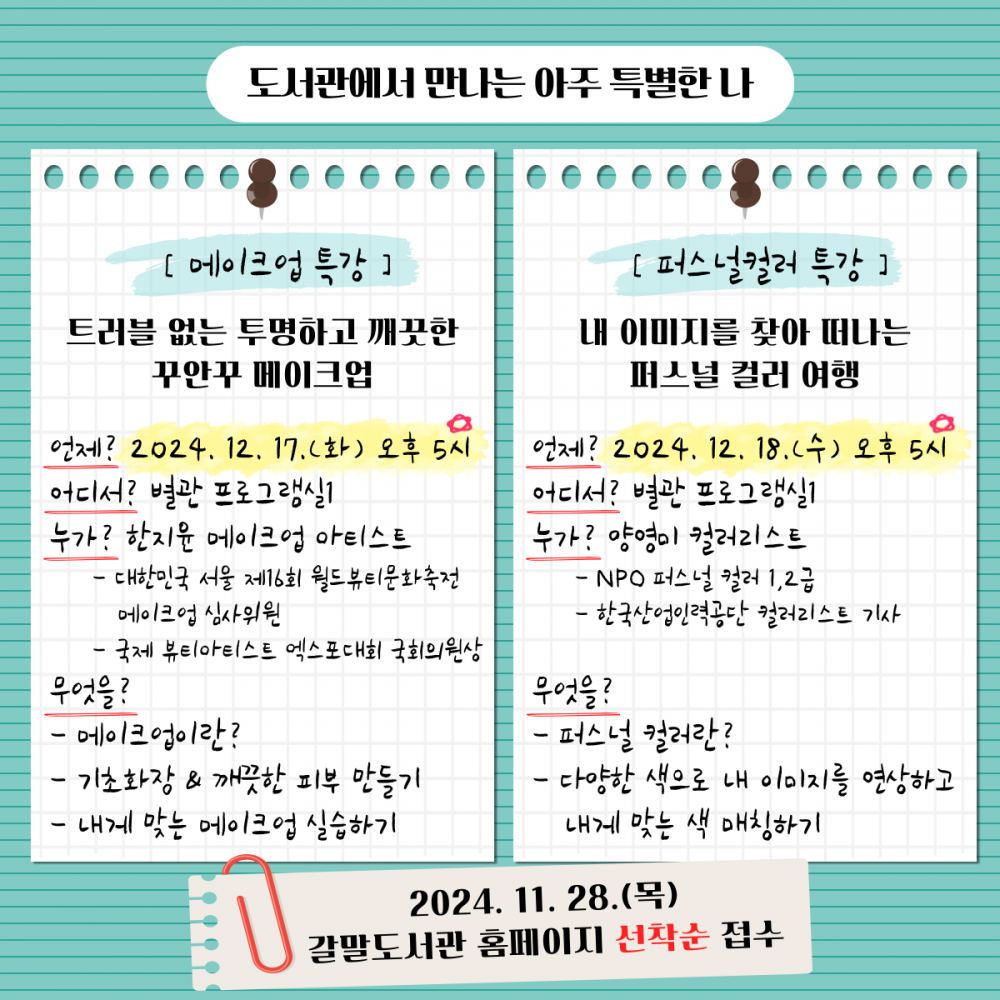 도서관에서 만나는 아주 특별한 나
[ 메이크업 특강 ]
트러블 없는 투명하고 깨끗한
꾸안꾸 메이크업
언제? 2024. 12. 17.(화) 오후 5시
어디서? 별관 프로그램실1
누가? 한지윤 메이크업 아티스트
- 대한민국 서울 제16회 월드뷰티문화축전
메이크업 심사위원
- 국제 뷰티아티스트 엑스포대회 국회의원상
무엇을?
- 메이크업이란?
- 기초화장 & 깨끗한 피부 만들기
- 내게 맞는 메이크업 실습하기
[ 퍼스널컬러 특강 ]
내 이미지를 찾아 떠나는
퍼스널 컬러 여행
언제? 2024. 12. 18.(수) 오후 5시
어디서? 별관 프로그램실1
누가? 양영미 컬러리스트
- NPO 퍼스널 컬러 1,2급
- 한국산업인력공단 컬러리스트 기사
무엇을?
- 퍼스널 컬러란?
- 다양한 색으로 내 이미지를 연상하고
내게 맞는 색 매칭하기
2024. 11. 28.(목)
갈말도서관 홈페이지 선착순 접수